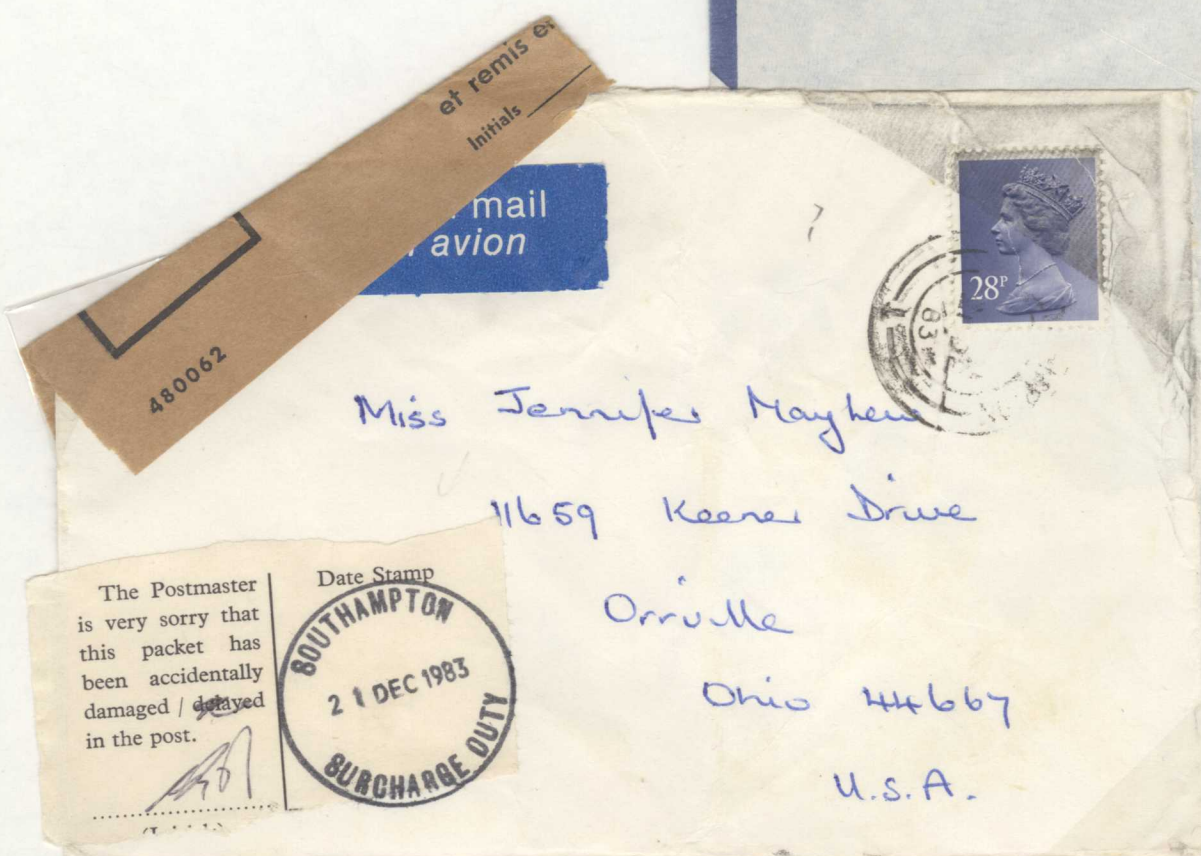 et remis e
Initials
480062
mail
avion
28P
83
Miss Jennifer Mayhew
11659 Keener Drive
Orrville
Ohio 44667
U.S.A.
The Postmaster
is very sorry that
this packet has
been accidentally
damaged / delayed
in the post.
Date Stamp
SOUTHAMPTON
21 DEC 1983
SURCHARGE DUTY